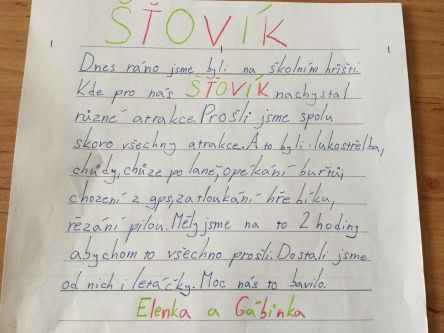 ŠŤOVÍK
Dnes ráno jsme byli na školním hřišti.
Kde pro nás ŠŤOVÍK nachystal
různé atrakce. Prošli jsme spolu
skoro všechny atrakce. A to byli: lukostřelba,
chůdy, chůze po laně, opékání buřtů,
chození z gps, zatloukání hřebíku,
řezání pilou. Měly jsme na to 2 hodiny
abychom to všechno prošli. Dostali jsme
od nich i letáčky. Moc nás to bavilo.
Elenka a Gábinka